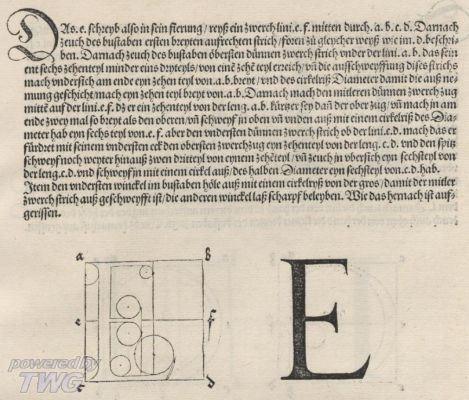 DAs .e. schreyb also in sein fierung / reyß ein zwerch lini .e.f. mitten durch .a.b.c.d. Darnach
zeuch des bustaben ersten breyten aufrechten strich / foren zů gleycher weyß wie im .d. beschri-
ben. Darnach zeuch des bustaben öbersten dünnen zwerch strich vnder der lini .a.b. das sein
ent sechs zehenteyl minder ein dryteyls / von eine zehē teyl erreich / vñ die ausschweyffung dises strichs
mach vndersich am ende eyn zehen teyl von .a.b. breyt / vnd des cirkelriß Diameter damit die auß ne-
mung geschicht / mach eyn zehen teyl breyt von .a.b. Darnach mach den mitleren dünnen zwerch zug
mittē auf der lini .e.f. dz er ein zehenteyl von der leng .a.b. kürtzer sey dañ der ober zug / vñ mach in am
ende zwey mal so breyt als den oberen / vñ schweyf in oben vñ vnden auß mit einem cirkelriß des Dia-
meter hab eyn sechs teyl von .e.f. aber den vndersten dünnen zwerch strich ob der lini .c.d. mach das er
fürdret mit seinem vndersten eck den obersten zwerchzug eyn zehenteyl von der leng .c.d. vnd den spitz
schweyf noch weyter hinauß zwen dritteyl von eynem zehēteyl / vñ zeuch in vbersich eyn sechsteyl von
der leng .c.d. vnd schweyf in mit einem cirkel auß / des halben Diameter eyn sechsteyl von .c.d. hab.
Item den vndersten winckel im bustaben höle auß mit einem cirkelryß von der gros / damit der mitler
zwerch strich auß geschweyfft ist / die anderen winckel laß scharpf beleyben. Wie das hernach ist auf-
gerissen.
a b
e f
c d
E
powered by
TWG